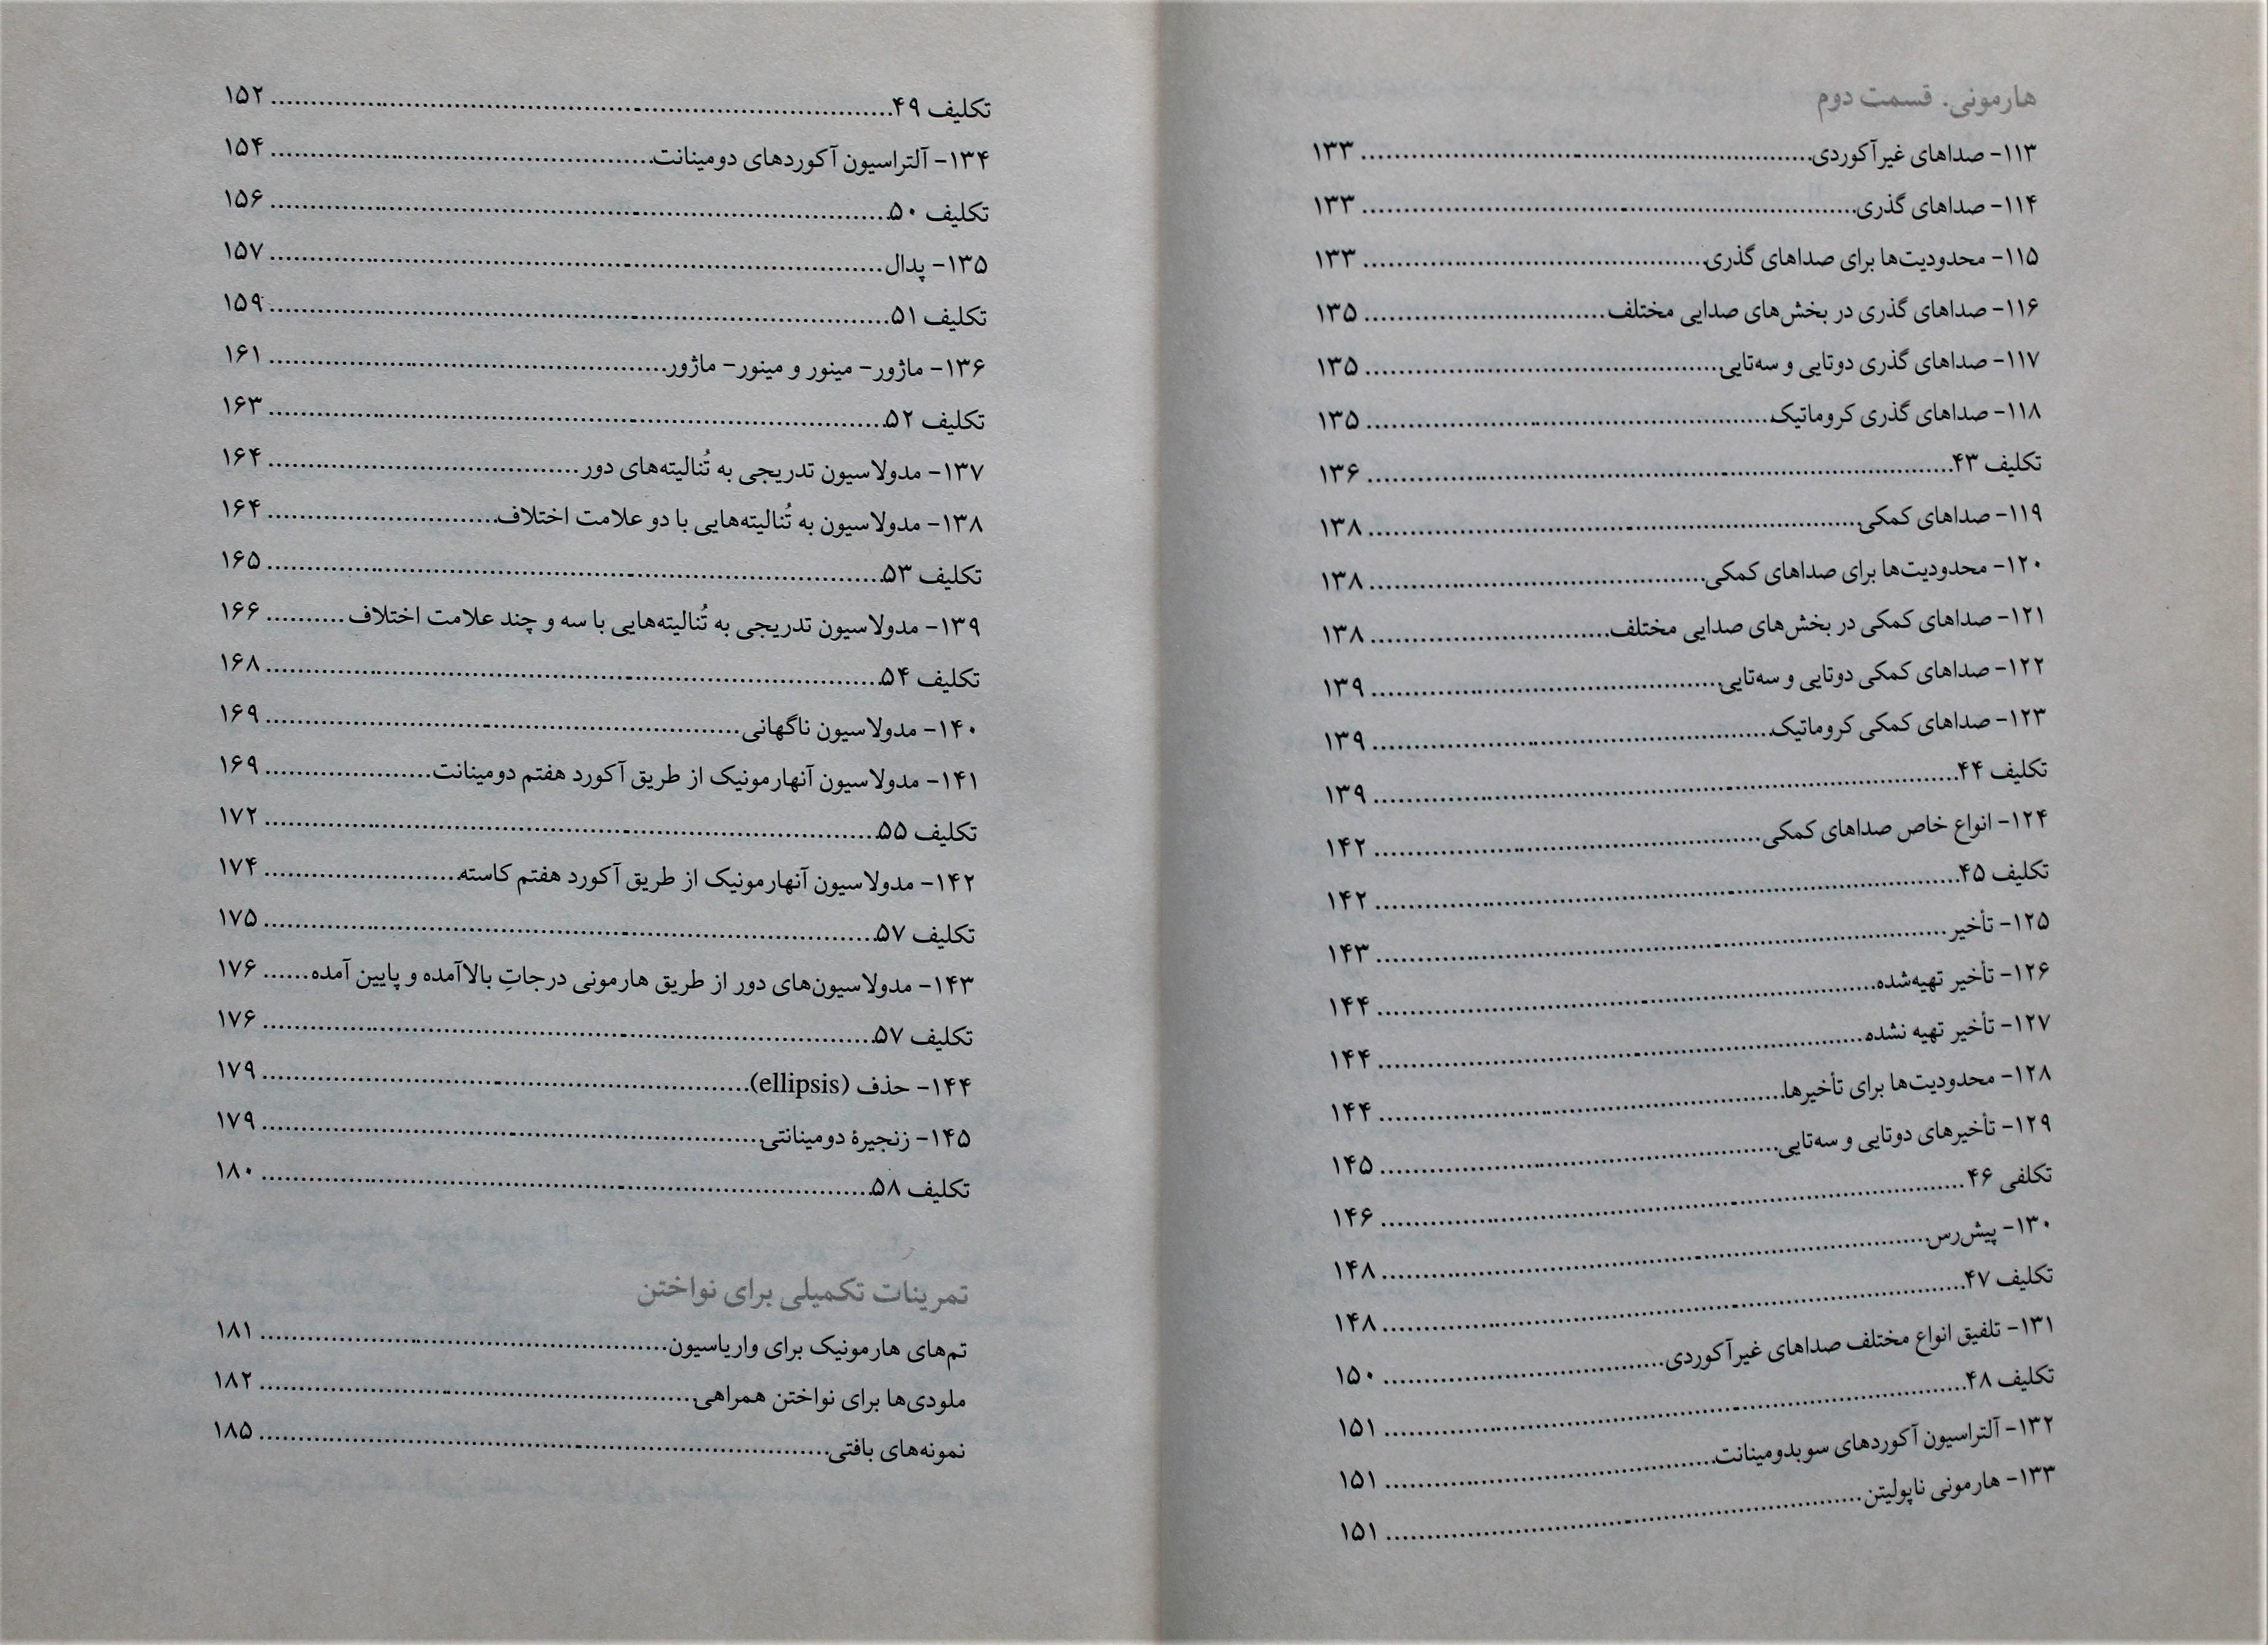 هارمونی. قسمت دوم
۱۱۳- صداهای غیرآکوردی ........ ۱۳۳
۱۱۴- صداهای گذری ........ ۱۳۳
۱۱۵- محدودیت‌ها برای صداهای گذری ........ ۱۳۳
۱۱۶- صداهای گذری در بخش‌های صدایی مختلف ........ ۱۳۵
۱۱۷- صداهای گذری دوتایی و سه‌تایی ........ ۱۳۵
۱۱۸- صداهای گذری کروماتیک ........ ۱۳۵
تکلیف ۴۳ ........ ۱۳۶
۱۱۹- صداهای کمکی ........ ۱۳۸
۱۲۰- محدودیت‌ها برای صداهای کمکی ........ ۱۳۸
۱۲۱- صداهای کمکی در بخش‌های صدایی مختلف ........ ۱۳۸
۱۲۲- صداهای کمکی دوتایی و سه‌تایی ........ ۱۳۹
۱۲۳- صداهای کمکی کروماتیک ........ ۱۳۹
تکلیف ۴۴ ........ ۱۳۹
۱۲۴- انواع خاص صداهای کمکی ........ ۱۴۲
تکلیف ۴۵ ........ ۱۴۲
۱۲۵- تأخیر ........ ۱۴۳
۱۲۶- تأخیر تهیه‌شده ........ ۱۴۴
۱۲۷- تأخیر تهیه نشده ........ ۱۴۴
۱۲۸- محدودیت‌ها برای تأخیرها ........ ۱۴۴
۱۲۹- تأخیرهای دوتایی و سه‌تایی ........ ۱۴۵
تکلفی ۴۶ ........ ۱۴۶
۱۳۰- پیش‌رس ........ ۱۴۸
تکلیف ۴۷ ........ ۱۴۸
۱۳۱- تلفیق انواع مختلف صداهای غیرآکوردی ........ ۱۵۰
تکلیف ۴۸ ........ ۱۵۱
۱۳۲- آلتراسیون آکوردهای سوبدومینانت ........ ۱۵۱
۱۳۳- هارمونی ناپولیتن ........ ۱۵۱
تکلیف ۴۹ ........ ۱۵۲
۱۳۴- آلتراسیون آکوردهای دومینانت ........ ۱۵۴
تکلیف ۵۰ ........ ۱۵۶
۱۳۵- پدال ........ ۱۵۷
تکلیف ۵۱ ........ ۱۵۹
۱۳۶- ماژور- مینور و مینور- ماژور ........ ۱۶۱
تکلیف ۵۲ ........ ۱۶۳
۱۳۷- مدولاسیون تدریجی به تُنالیته‌های دور ........ ۱۶۴
۱۳۸- مدولاسیون به تُنالیته‌هایی با دو علامت اختلاف ........ ۱۶۴
تکلیف ۵۳ ........ ۱۶۵
۱۳۹- مدولاسیون تدریجی به تُنالیته‌هایی با سه و چند علامت اختلاف ........ ۱۶۶
تکلیف ۵۴ ........ ۱۶۸
۱۴۰- مدولاسیون ناگهانی ........ ۱۶۹
۱۴۱- مدولاسیون آنهارمونیک از طریق آکورد هفتم دومینانت ........ ۱۶۹
تکلیف ۵۵ ........ ۱۷۲
۱۴۲- مدولاسیون آنهارمونیک از طریق آکورد هفتم کاسته ........ ۱۷۴
تکلیف ۵۷ ........ ۱۷۵
۱۴۳- مدولاسیون‌های دور از طریق هارمونی درجاتِ بالاآمده و پایین آمده ...... ۱۷۶
تکلیف ۵۷ ........ ۱۷۶
۱۴۴- حذف (ellipsis) ........ ۱۷۹
۱۴۵- زنجیرهٔ دومینانتی ........ ۱۷۹
تکلیف ۵۸ ........ ۱۸۰
تمرینات تکمیلی برای نواختن
تم‌های هارمونیک برای واریاسیون ........ ۱۸۱
ملودی‌ها برای نواختن همراهی ........ ۱۸۲
نمونه‌های بافتی ........ ۱۸۵